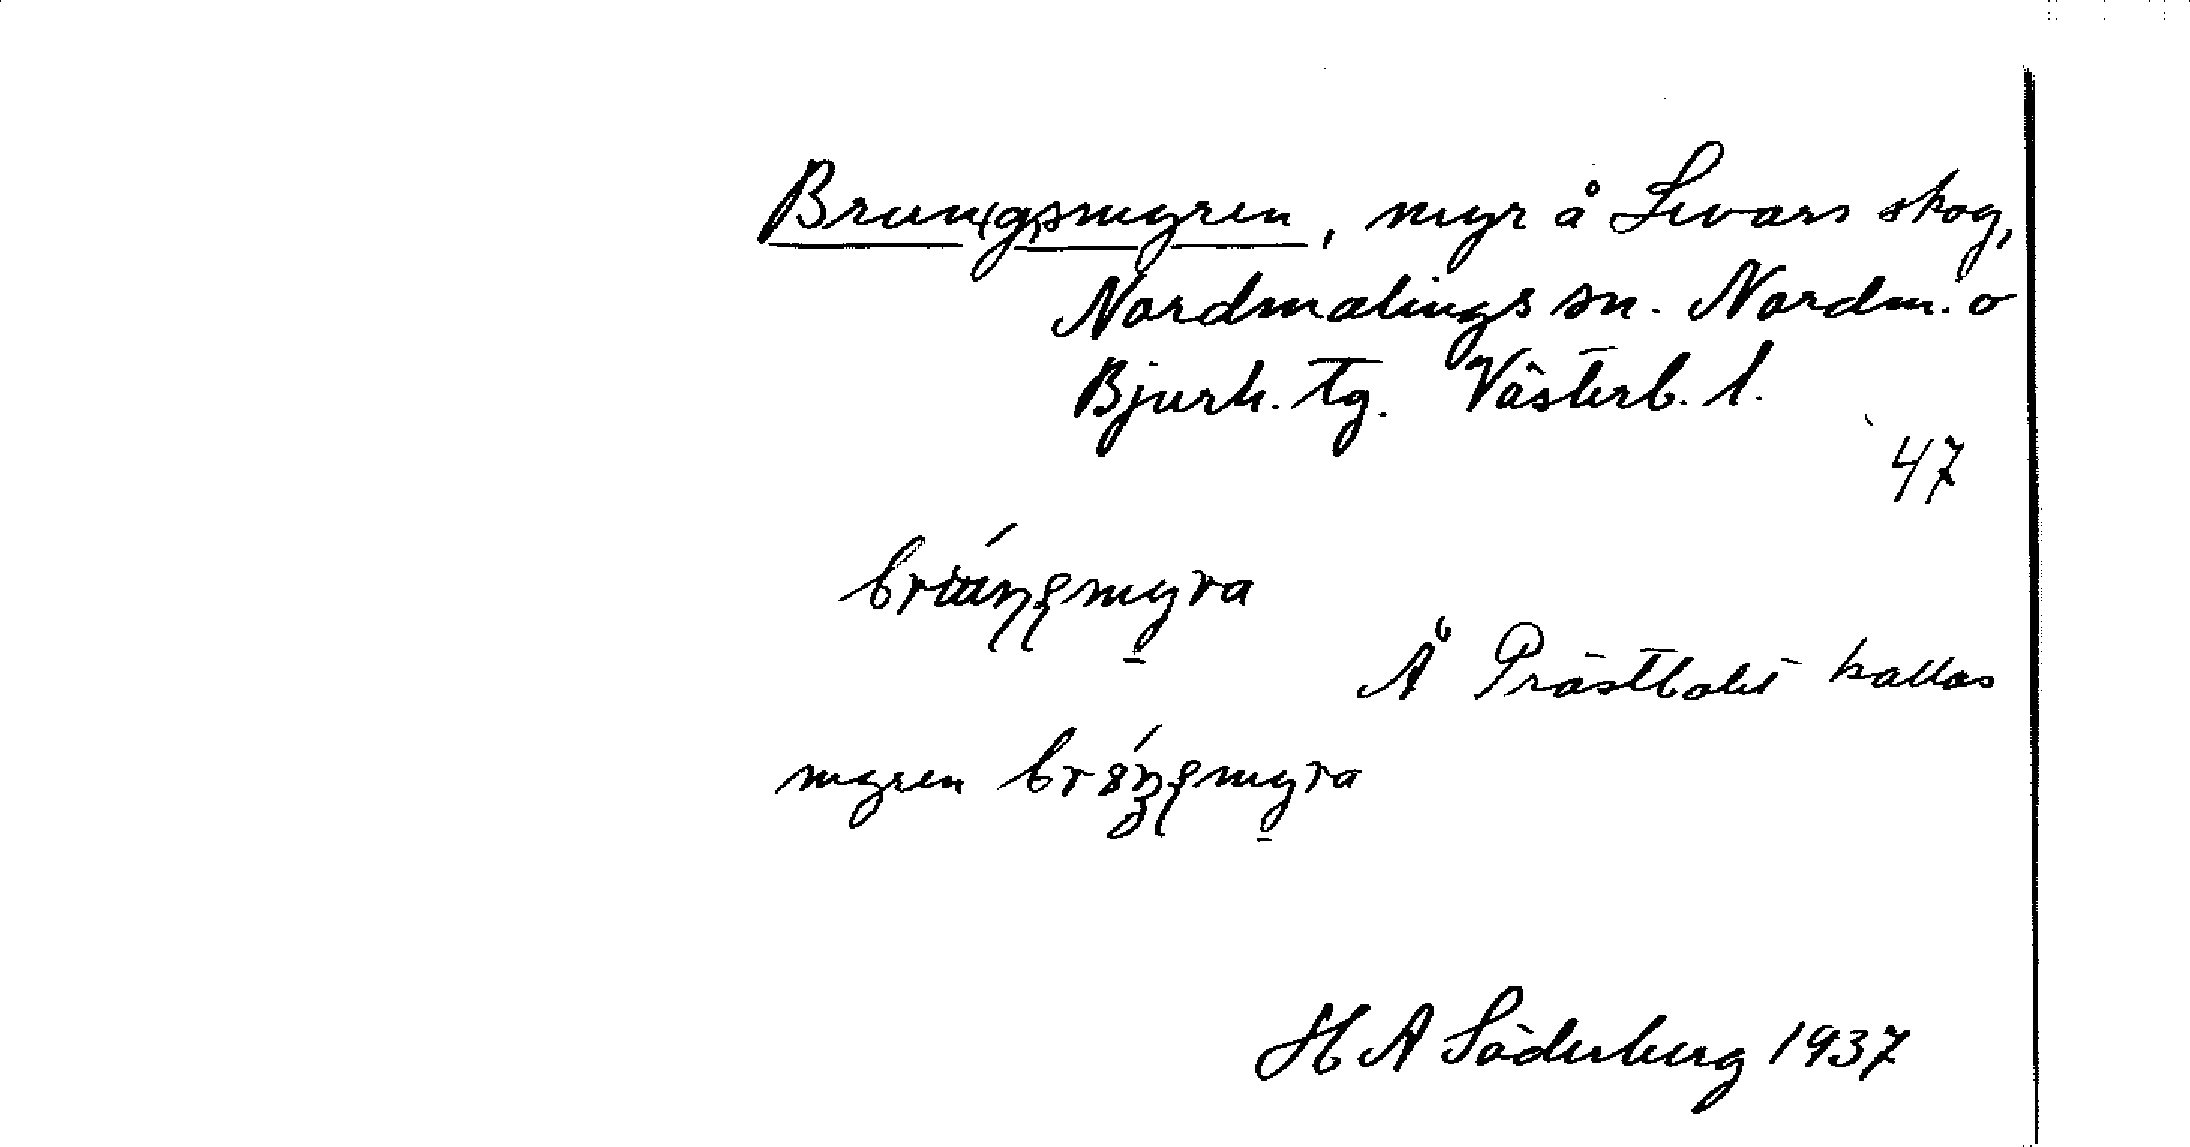 Brun(g)smyren, myr å Levars skog,
Nordmalings sn. Nordm. o
Bjurh. tg. Västerb. l.
47
Å Prästbolet kallas
myren
H A Söderberg 1937